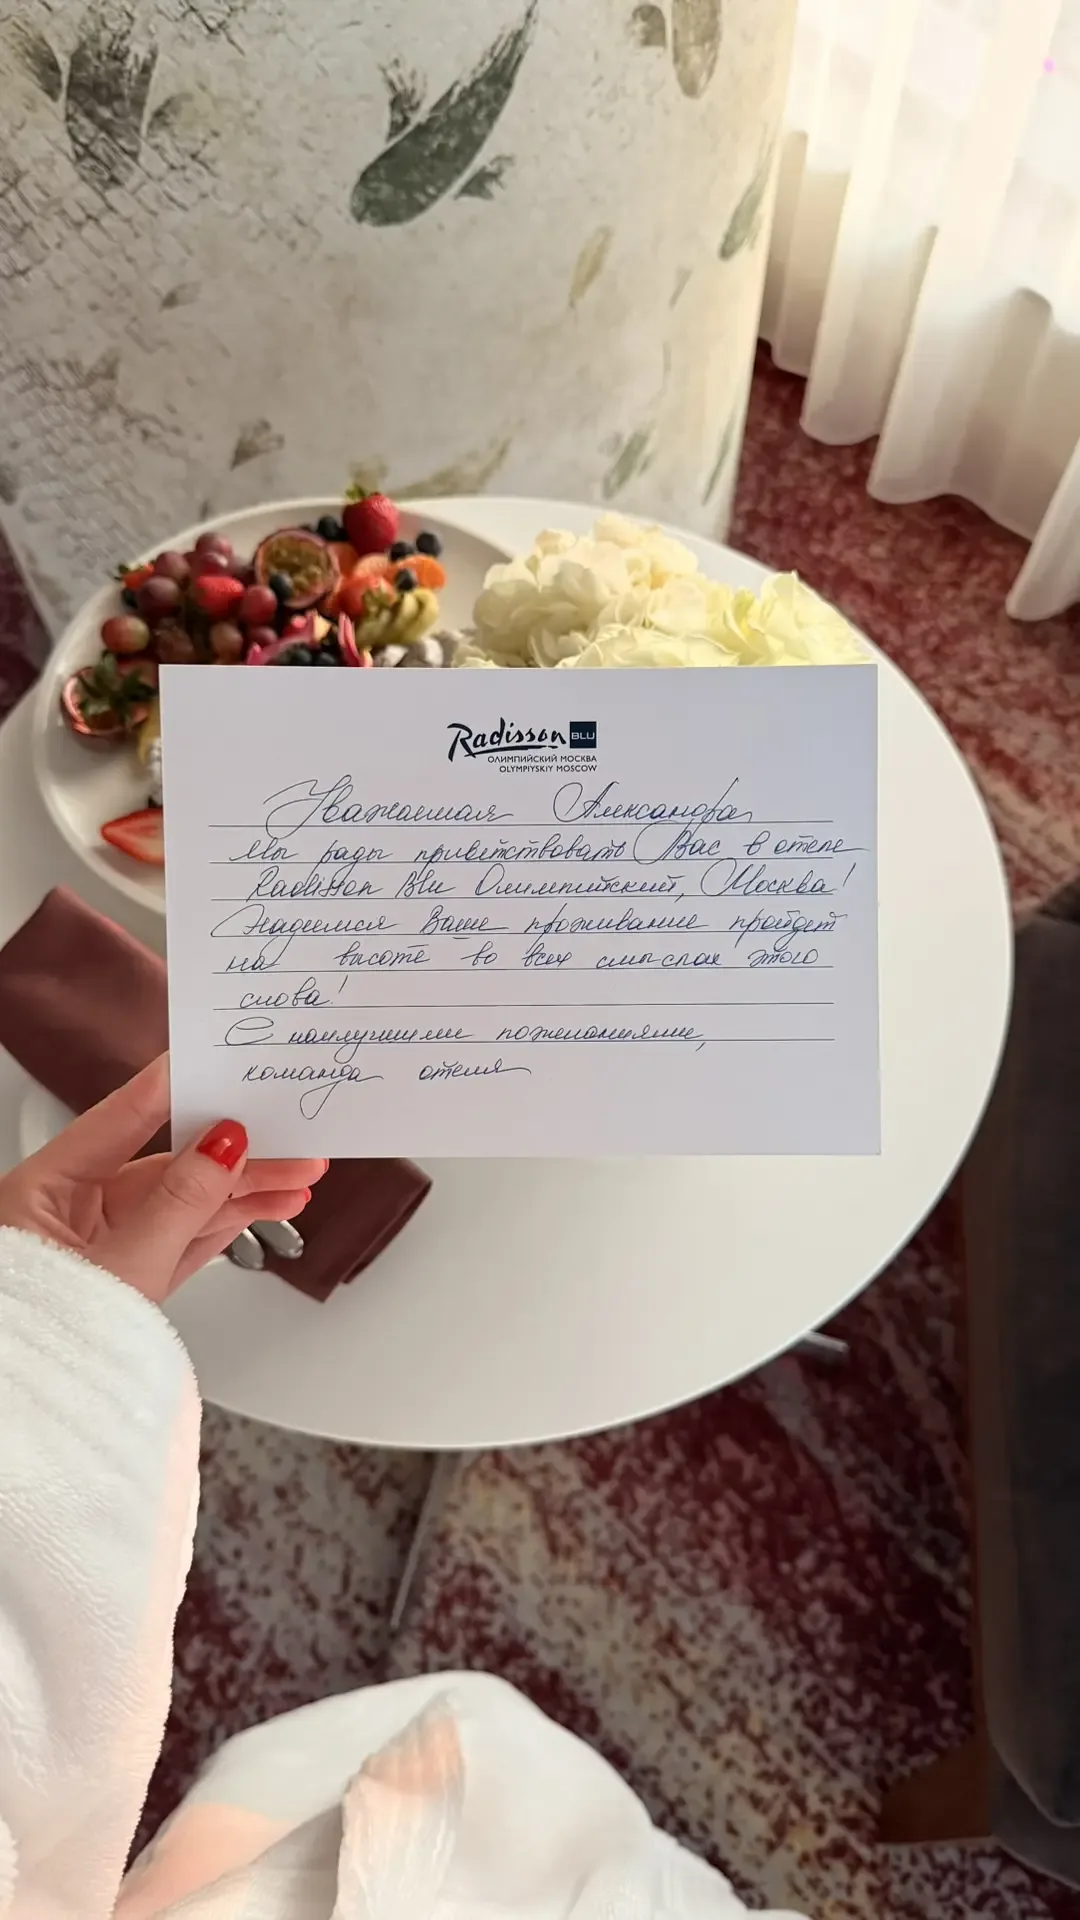 Radisson BLU
ОЛИМПИЙСКИЙ МОСКВА
OLYMPIYSKIY MOSCOW
Уважаемая Александра
Мы рады приветствовать Вас в отеле
Radisson Blu Олимпийский, Москва!
Надеемся Ваше проживание пройдет
на высоте во всех смыслах этого
слова!
С наилучшими пожеланиями,
команда отеля